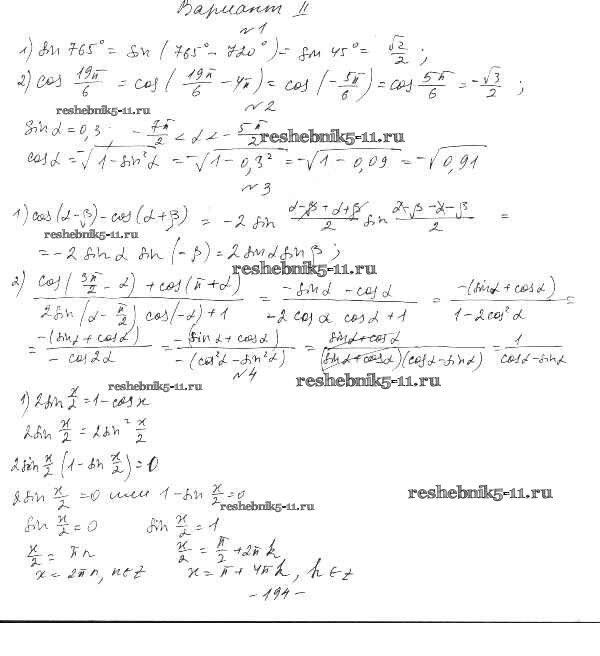 Вариант II
№1
1) sin 765° = sin (765° - 720°) = sin 45° = √2/2 ;
2) cos 19π/6 = cos (19π/6 - 4π) = cos (-5π/6) = cos 5π/6 = -√3/2 ;
reshebnik5-11.ru
№2
sin α = 0,3 ; -7π/2 < α < -5π/2
reshebnik5-11.ru
cos α = -√(1 - sin²α) = -√(1 - 0,3²) = -√(1 - 0,09) = -√0,91
№3
1) cos(α-β) - cos(α+β) = -2 sin (α-β+α+β)/2 sin (α-β-α-β)/2 =
reshebnik5-11.ru
= -2 sin α sin (-β) = 2 sin α sin β ;
reshebnik5-11.ru
2) (cos(3π/2 - α) + cos(π+α))/(2 sin(α - π/2) cos(-α) + 1) = (-sin α - cos α)/(-2 cos α cos α + 1) = (-(sin α + cos α))/(1 - 2cos²α) =
= (-(sin α + cos α))/(-cos 2α) = (-(sin α + cos α))/(-(cos²α - sin²α)) = (sin α + cos α)/((sin α + cos α)(cos α - sin α)) = 1/(cos α - sin α)
№4
reshebnik5-11.ru
reshebnik5-11.ru
1) 2 sin x/2 = 1 - cos x
2 sin x/2 = 2 sin² x/2
2 sin x/2 (1 - sin x/2) = 0
2 sin x/2 = 0 или 1 - sin x/2 = 0
reshebnik5-11.ru
reshebnik5-11.ru
sin x/2 = 0 sin x/2 = 1
x/2 = πn x/2 = π/2 + 2πk
x = 2πn, n∈Z x = π + 4πk, k∈Z
- 194 -